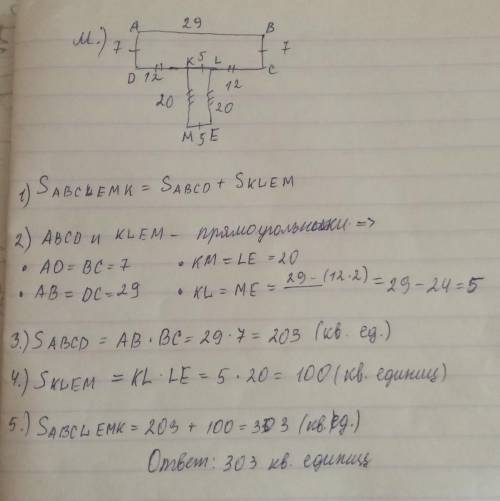 м.)
A 29 B
7 7
D 12 K 5 L 12 C
20 20
M 5 E
1) SABCLEMK = SABCD + SKLEM
2) ABCD и KLEM - прямоугольники =>
• AD = BC = 7 • KM = LE = 20
• AB = DC = 29 • KL = ME = 29 - (12·2) = 29 - 24 = 5
3.) SABCD = AB · BC = 29 · 7 = 203 (кв. ед.)
4.) SKLEM = KL · LE = 5 · 20 = 100 (кв. единиц)
5.) SABCLEMK = 203 + 100 = 303 (кв. ед.)
Ответ: 303 кв. единиц